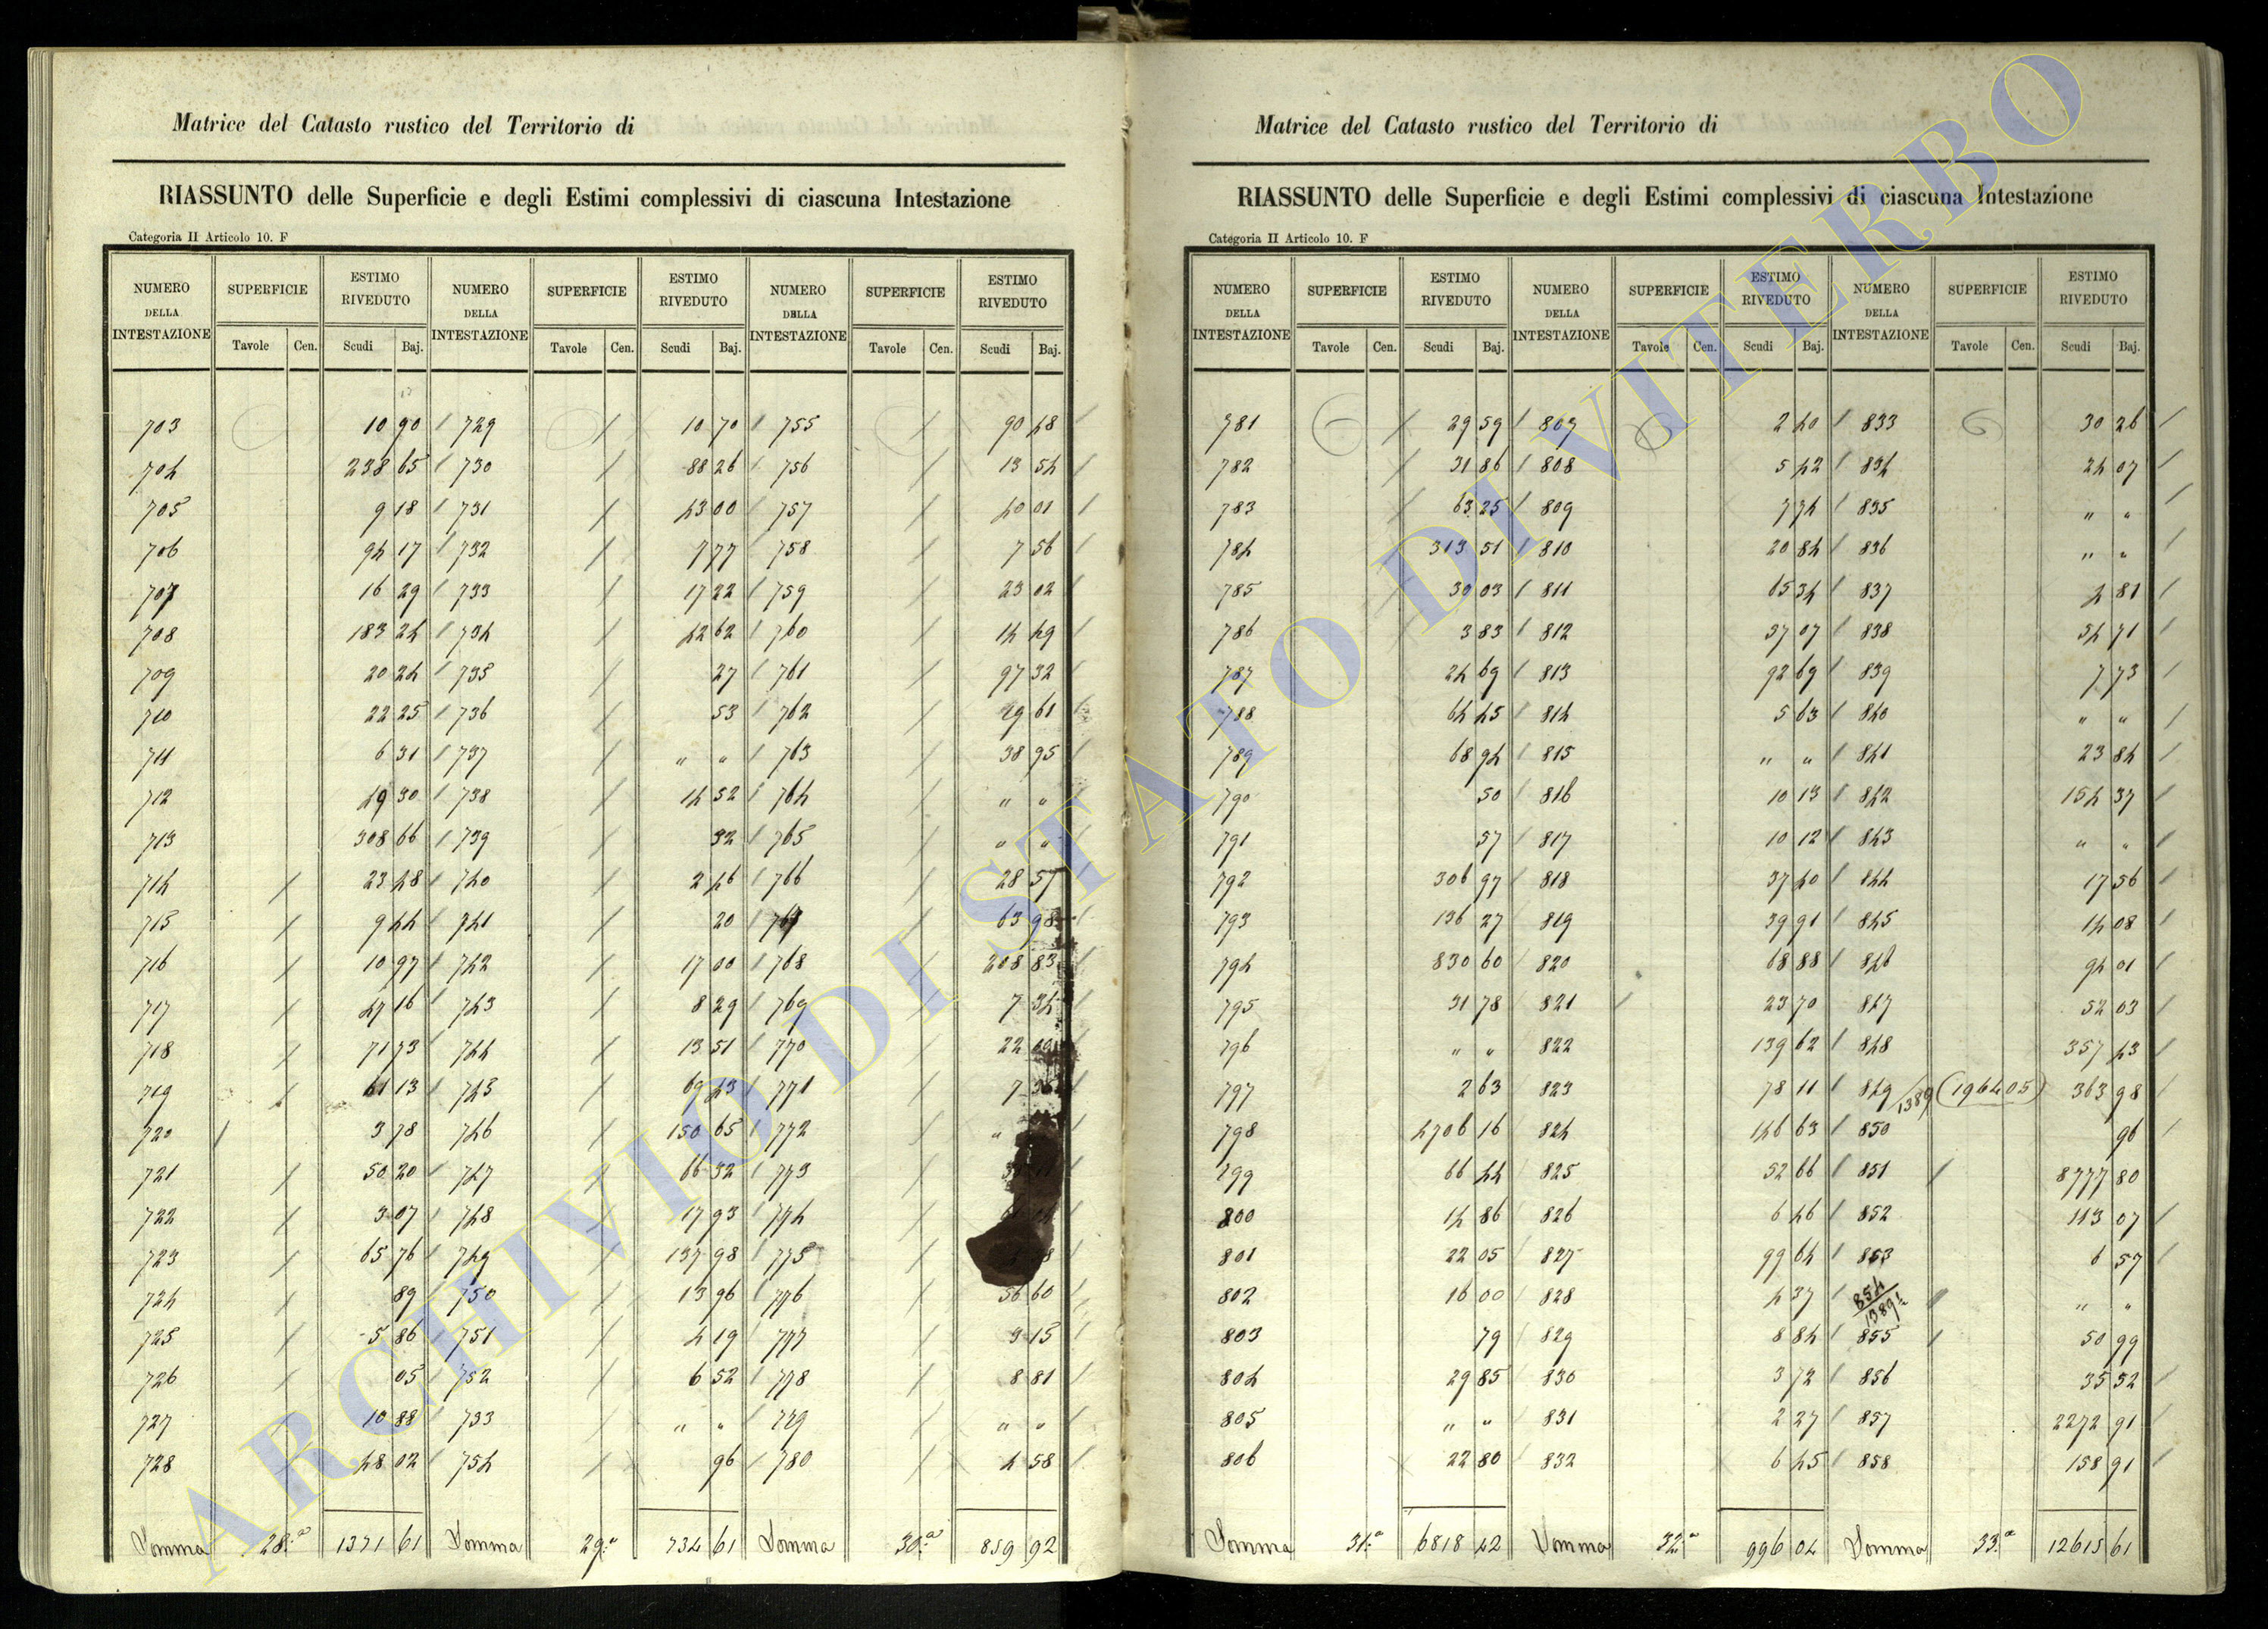 Matrice del Catasto rustico del Territorio di
RIASSUNTO delle Superficie e degli Estimi complessivi di ciascuna Intestazione
Categoria II Articolo 10. F
NUMERO DELLA INTESTAZIONE SUPERFICIE ESTIMO RIVEDUTO NUMERO DELLA INTESTAZIONE SUPERFICIE ESTIMO RIVEDUTO NUMERO DELLA INTESTAZIONE SUPERFICIE ESTIMO RIVEDUTO
Tavole Cen. Scudi Baj. Tavole Cen. Scudi Baj. Tavole Cen. Scudi Baj.
703 10 90 729 10 70 755 90 48
704 238 65 730 88 26 756 13 54
705 9 18 731 43 00 757 40 01
706 94 17 732 7 77 758 7 56
707 16 29 733 17 22 759 23 02
708 183 24 734 42 62 760 14 49
709 20 24 735 27 761 97 32
710 22 25 736 53 762 19 61
711 6 31 737 " " 763 38 95
712 49 30 738 14 52 764 " "
713 308 66 739 32 765 " "
714 23 48 740 2 46 766 28 57
715 9 44 741 20 767 63 98
716 10 97 742 17 00 768 208 83
717 47 16 743 8 29 769 7 34
718 71 73 744 13 51 770 22
719 61 13 745 69 43 771 7
720 3 78 746 150 65 772 "
721 50 20 747 66 32 773
722 3 07 748 17 93 774
723 65 76 749 137 98 775
724 89 750 13 96 776 56 60
725 5 86 751 4 19 777 3 15
726 05 752 6 52 778 8 81
727 10 88 753 " " 779 " "
728 48 02 754 96 780 4 58
Somma 28.a 1371 61 Somma 29.a 734 61 Somma 30.a 859 92
Matrice del Catasto rustico del Territorio di
RIASSUNTO delle Superficie e degli Estimi complessivi di ciascuna Intestazione
Categoria II Articolo 10. F
NUMERO DELLA INTESTAZIONE SUPERFICIE ESTIMO RIVEDUTO NUMERO DELLA INTESTAZIONE SUPERFICIE ESTIMO RIVEDUTO NUMERO DELLA INTESTAZIONE SUPERFICIE ESTIMO RIVEDUTO
Tavole Cen. Scudi Baj. Tavole Cen. Scudi Baj. Tavole Cen. Scudi Baj.
781 29 59 807 2 40 833 30 26
782 31 86 808 5 42 834 24 07
783 63 25 809 7 74 835 " "
784 313 51 810 20 84 836 " "
785 30 03 811 65 34 837 2 81
786 3 83 812 37 07 838 54 71
787 24 69 813 92 69 839 7 73
788 64 45 814 5 63 840 " "
789 68 94 815 " " 841 23 84
790 50 816 10 13 842 154 37
791 57 817 10 12 843 " "
792 306 97 818 37 40 844 17 56
793 136 27 819 39 91 845 14 08
794 830 60 820 68 88 846 94 01
795 31 78 821 23 70 847 52 03
796 " " 822 139 62 848 357 43
797 2 63 823 78 11 849/1389 (1964 05) 363 98
798 4706 16 824 146 63 850 96
799 66 44 825 52 66 851 8777 80
800 14 86 826 6 46 852 113 07
801 22 05 827 99 64 853 6 57
802 16 00 828 4 37 854/1389½ " "
803 79 829 8 84 855 50 99
804 29 85 830 3 72 856 35 52
805 " " 831 2 27 857 2272 91
806 22 80 832 6 45 858 158 91
Somma 31.a 6818 42 Somma 32.a 996 04 Somma 33.a 12615 61
ARCHIVIO DI STATO DI VITERBO